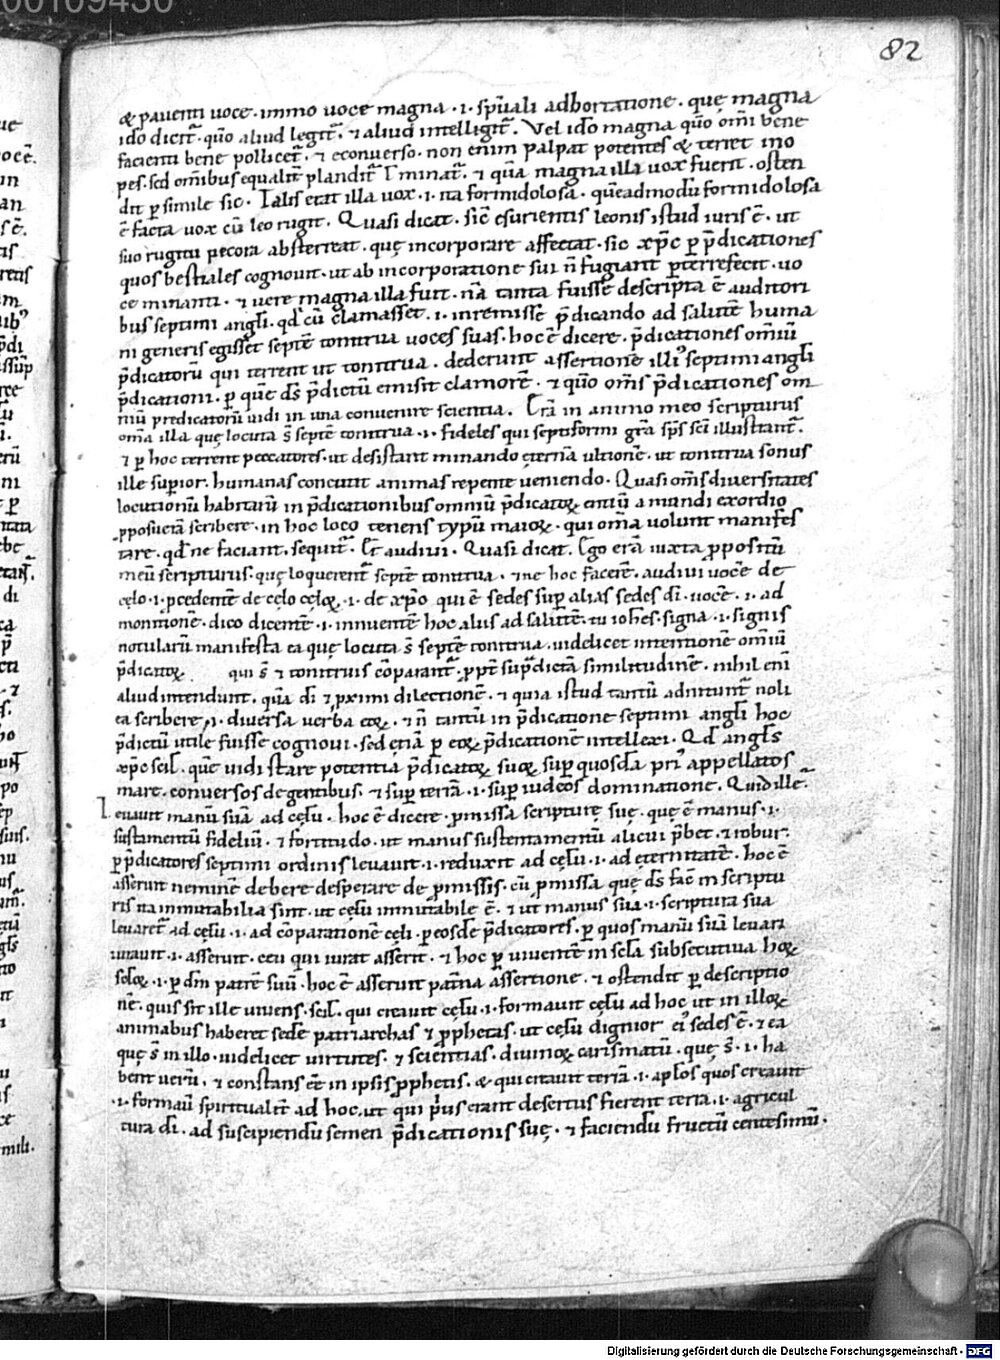 82
& pauenti uoce. immo uoce magna .i. sp̄uali adhortatione. quę magna
ido dicit̄. quō aliud legit̄. ⁊ aliud intelligit̄. Vel ido magna quō om̄i bene
facienti bene pollicet̄. ⁊ econuerso. non enim palpat potentes & terret ino
pes. sed om̄ibus equalit̄ plandit̄ ł minat̄. ⁊ q̄a magna illa uox fuerit. osten
dit ꝑ simile sic. Talis erit illa uox .i. ita formidolosa. quēadmodū formidolosa
ē facta uox cū leo rugit. Quasi dicat. sic̄ esurientis leonis istud iuris ē. ut
suo rugitu pecora absterreat. quę incorporare affectat. sic xp̄c ꝑ p̄dicationes
quos bestiales cognouit. ut ab incorporatione sui n̄ fugiant ꝑterrefecit. uo
ce minanti. ⁊ uere magna illa fuit. nā tanta fuisse descripta ē auditori
bus septimi angli. qd̄ cū clamasset .i. inremisse p̄dicando ad salutē huma
ni generis egisset septē tonitrua uoces suas. hoc ē dicere. p̄dicationes omiū
p̄dicatorū qui terrent ut tonitrua. dederunt assertionē illi᾽ septimi angli
p̄dicationi. ꝑ quē ds̄ p̄dictū emisit clamorē. ⁊ quō om̄s p̄dicationes om
niū predicatorū uidi in una conuenire scientia. Erā in animo meo scripturus
om̄a illa quę locuta s̄ septē tonitrua .i. fideles qui septiformi gr̄a sp̄s sc̄i illustrant̄.
⁊ ꝑ hoc terrent peccatores. ut desistant minando ęternā ultionē. ut tonitrua sonus
ille suꝑior. humanas concutit animas repente ueniendo. Quasi om̄s diuersitates
locutionū habitarū in p̄dicationibus omniū p̄dicatoꝝ entiū a mundi exordio
ꝓposuerā scribere. in hoc loco tenens typū maioꝝ. qui om̄a uolunt manifes
tare. qd̄ ne faciant. sequit̄. Et audiui. Quasi dicat. Ego erā iuxta ꝓpositū
meū scripturus. quę loquerent̄ septē tonitrua. ⁊ ne hoc facerē. audiui uocē de
cęlo .i. ꝓcedentē de cęlo cęloꝝ .i. de xp̄o qui ē sedes suꝑ alias sedes dī. uocē .i. ad
monitionē. dico dicentē .i. innuentē hoc aliis ad salutē. tu iohes̄. signa .i. signis
notularū manifesta ea quę locuta s̄ septē tonitrua. uidelicet intentionē omiū
p̄dicatoꝝ qui s̄ ⁊ tonitruis cōparant̄. ꝓpt̄ suꝑdictā similitudinē. nihil enī
aliud intendunt. quā dī ⁊ ꝓximi dilectionē. ⁊ quia istud tantū adnitunt̄ noli
ea scribere .i. diuersa uerba eoꝝ. ⁊ n̄ tantū in p̄dicatione septimi angli hoc
p̄dictū utile fuisse cognoui. sed etiā ꝑ eoꝝ p̄dicationē intellexi. Qd̄ angls̄
xp̄c scil̄. quē uidi stare potentiā p̄dicatoꝝ suoꝝ suꝑ quosdā pri᾽ appellatos
mare. conuersos de gentibus. ⁊ suꝑ terrā .i. suꝑ iudeos dominatione. Quid ille.
Leuauit manū suā ad cęlū. hoc ē dicere. ꝓmissa scripturę suę. quę ē manus .i.
sustamentū fideliū. ⁊ fortitudo. ut manus sustentamentū alicui p̄bet. ⁊ robur.
ꝑ p̄dicatores septimi ordinis leuauit .i. reduxit ad cęlū .i. ad ęternitatē. hoc ē
asserunt neminē debere desperare de ꝓmissis. cū ꝓmissa quę ds̄ fac̄ in scriptu
ris ita inmutabilia sint. ut cęlū inmutabile ē. ⁊ ut manus sua .i. scriptura sua
leuaret̄ ad cęlū .i. ad cōparationē cęli. ꝑ eosdē p̄dicatores. ꝑ quos manū suā leuari
iurauit .i. asserunt. ceu qui iurat asserit. ⁊ hoc ꝑ uiuentē in scl̄a subsecutiua hoꝝ
scl̄oꝝ .i. ꝑ dm̄ patrē suū. hoc ē asserunt patn̄a assertione. ⁊ ostendit ꝑ descriptio
nē. quis sit ille uiuens. scil̄. qui creauit cęlū .i. formauit cęlū ad hoc ut in illoꝝ
animabus haberet sedē patriarchas ⁊ ꝓphetas. ut cęlū dignior ei᾽ sedes ē. ⁊ ea
quę s̄ in illo. uidelicet uirtutes. ⁊ scientias. diuinoꝝ carismatū. quę s̄ .i. ha
bent uerū. ⁊ constans eē in ipsis ꝓphetis. & qui creauit terrā .i. apl̄os quos creauit
.i. formaū spiritualit̄ ad hoc. ut qui p̄us erant desertus fierent terra .i. agricul
tura dī. ad suscipiendū semen p̄dicationis suę. ⁊ faciendū fructū centesimū.
Digitalisierung gefördert durch die Deutsche Forschungsgemeinschaft - DFG